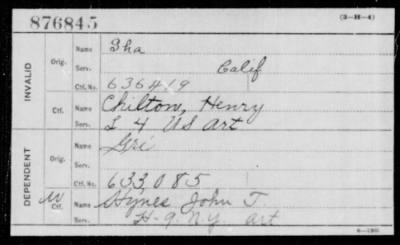 876845
(3-H-4)
Name Sha
Orig. Serv. Calif
Ctf. No. 636419
INVALID
Name Chilton, Henry
Ctf. Serv. L 4 US Art
Name Gri
Orig. Serv.
DEPENDENT
Ctf. No. 633,085
W Ctf. Name Hynes John T.
Serv. H-9. N.Y. art